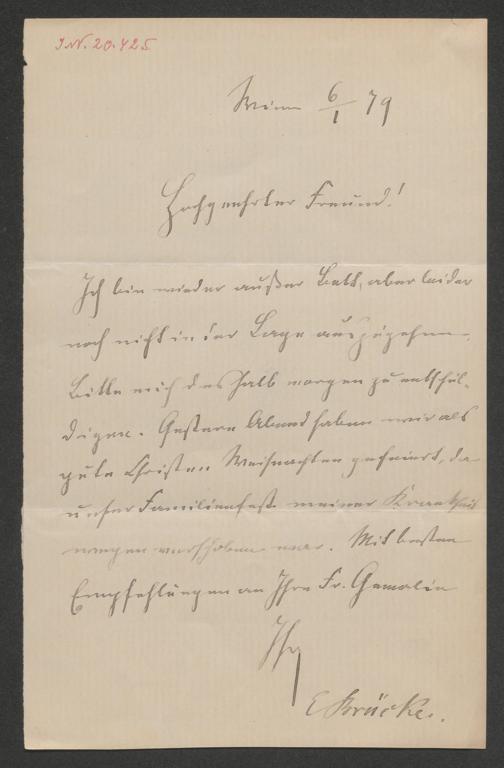 I.N. 20.425
Wien 6/1 79
Hochgeehrter Freund!
Ich bin wieder außer Bett, aber leider
noch nicht in der Lage auszugehen.
Bitte mich deshalb morgen zu entschul-
digen. Gestern Abend haben wir als
gute Christen Weihnachten gefeiert, da
unser Familienfest meiner Krankheit
wegen verschoben war. Mit besten
Empfehlungen an Ihre Fr. Gemalin
Ihr
E Brücke.